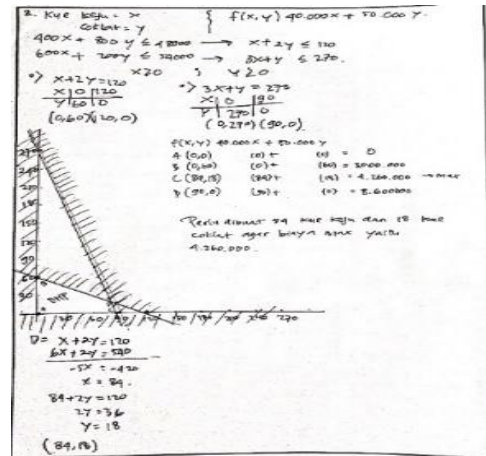 2. Kue keju = x
coklat = y
f(x,y) 40.000x + 50.000y.
400x + 800y ≤ 48000 → x+2y ≤ 120
600x + 200y ≤ 54000 → 3x+y ≤ 270.
x≥0 ; y≥0
•) x+2y=120
x | 0 | 120
y | 60 | 0
(0,60)(120,0)
•) 3x+y = 270
x | 0 | 90
y | 270 | 0
(0,270)(90,0)
f(x,y) 40.000x + 50.000y
A (0,0) (0)+ (0) = 0
B (0,60) (0)+ (60) = 3000.000
C (84,18) (84)+ (18) = 4.260.000 → max
D (90,0) (90)+ (0) = 3.600000
Perlu dibuat 84 kue keju dan 18 kue
coklat agar biaya max yaitu
4.260.000.
DHP
x+2y=120
6x+2y=540
-5x = -420
x = 84.
84+2y=120
2y=36
y=18
(84,18)